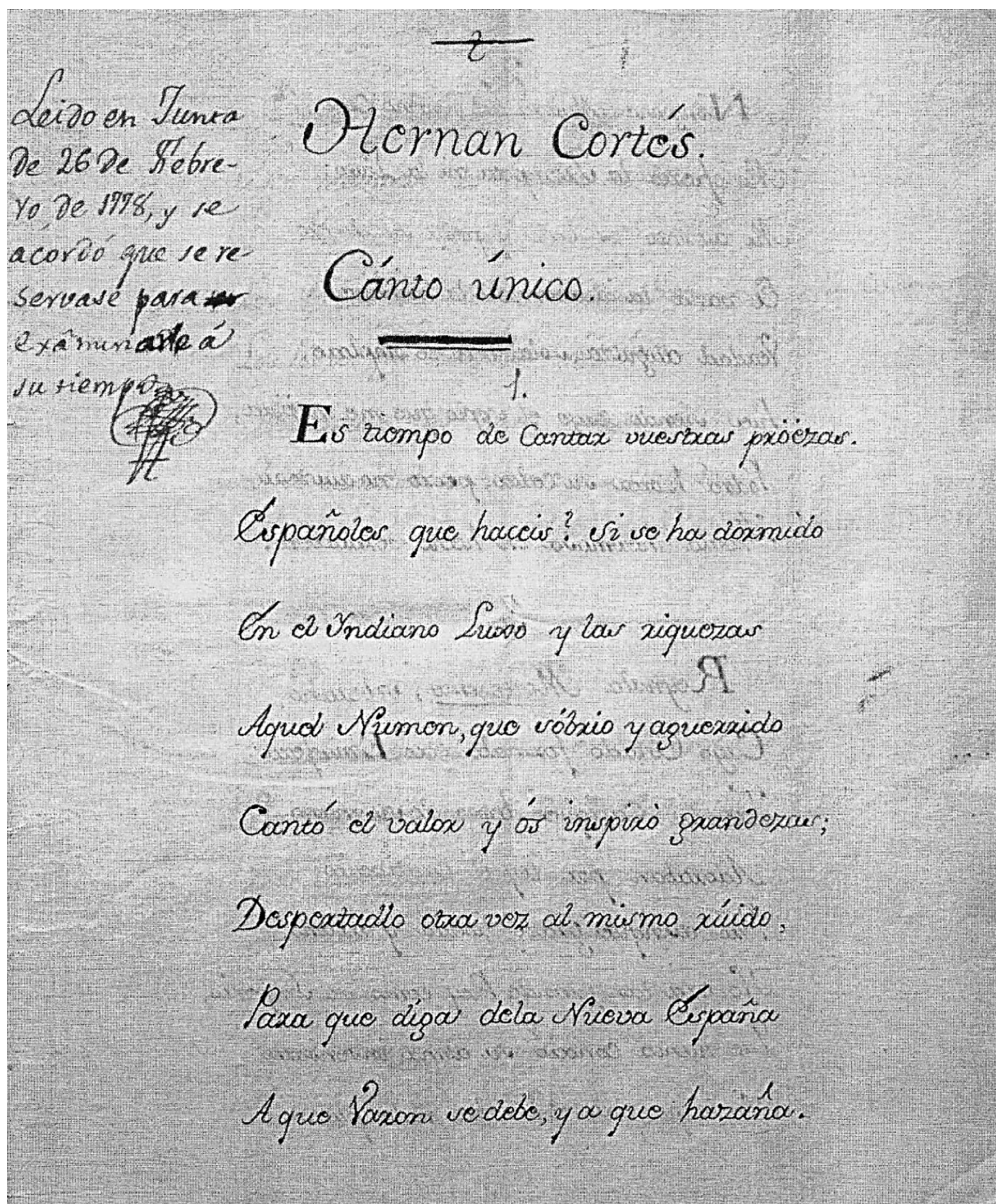 2
Leido en Junta
de 26 de Febre-
ro, de 1778, y se
acordó que se re-
servase para
exâminarle á
su tiempo.
Hernan Cortés.
Cánto único.
1.
Es tiempo de Cantar vuestras pröézas.
Españoles que haceis? si se ha dormido
En el Yndiano Luxo y las riquezas
Aquel Numen, que sóbrio y aguerrido
Cantó el valor y ós inspirò grandezas;
Despertadlo otra vez al mismo rúido,
Para que díga dela Nueva España
A que Varon se debe, y a que hazáña.